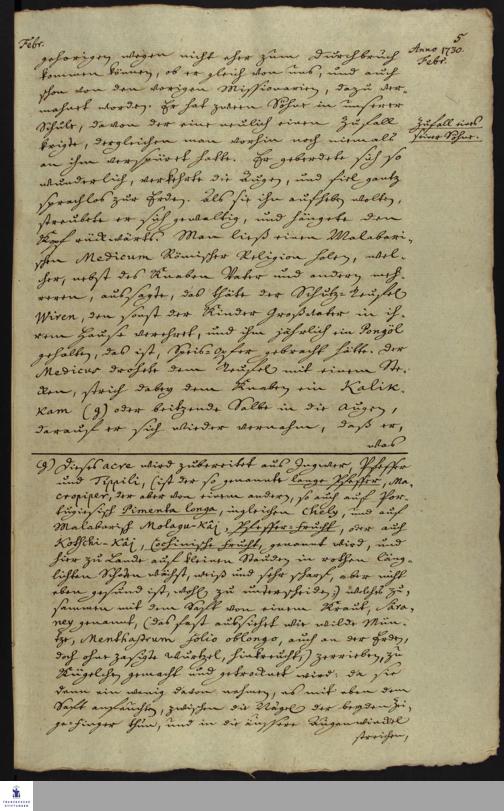 Febr.
5
Anno 1730.
Febr.
gehörigen wegen nicht eher zum Durchbruch
kommen können, ob er gleich von uns, und auch
schon von den vorigen Missionarien, dazu ver-
mahnet worden. Er hat zween Söhne in unserer
Schule, davon der eine neulich einen Zufall
kriegte, dergleichen man vorhin noch niemals
an ihm verspüret hatte. Er geberdete sich so
wunderlich, verkehrte die Augen, und fiel gantz
sprachlos zur Erden. Als sie ihn aufheben wolten,
streubete er sich gewaltig, und hängete den
Kopf rückwärts. Man ließ einen Malabari-
schen Medicum Römischer Religion holen, wel-
cher, nebst des Knaben Vater und andern meh-
reren, aussagte, das thäte der Schutz-Teufel
Wiren, den sonst der Kinder Großvater in ih-
rem Hause verehret, und ihm jährlich ein Pongöl
gehalten, das ist, Speis-Opfer gebracht hätte. Der
Medicus drohete dem Teufel mit einem Ste-
cken, strich dabey dem Knaben ein Kalik-
kam (g) oder beitzende Salbe in die Augen,
darauf er sich wieder vernahm, daß er,
was
Zufall eines
seiner Söhne.
g) Dieses acre wird zubereitet aus Ingwer, Pfeffer
und Tippili, (ist der so genannte lange Pfeffer, Ma-
cropiper, der aber von einem andern, so auch auf Por-
tugiesisch Pimenta longa, ingleichen Chily, und auf
Malabarisch Molagu-Kāj, Pfeffer-Frucht, oder auch
Kotschi-Kāj, Cochinische Frucht, genannt wird, und
hier zu Lande auf kleinen Stauden in rothen läng-
lichten Schoten wächst, weiß und sehr scharf, aber nicht
eben gesund ist, wohl zu unterscheiden;) welche zu-
sammen mit dem Safft von einem Kraut,
genannt, (das fast aussiehet wie wilde Mün-
tze, Menthastrum folio oblongo, auch an der Erden,
doch ohne Wurtzel, hinkreucht,) zerrieben, zu
Kügelchen gemacht und getrocknet wird: da sie
dann ein wenig davon nehmen, es mit eben dem
Safft anfeuchten, zwischen die Nägel der beyden Zei-
gefinger thun, und in die äussere Augenwinckel
streichen,
FRANCKESCHE
STIFTUNGEN